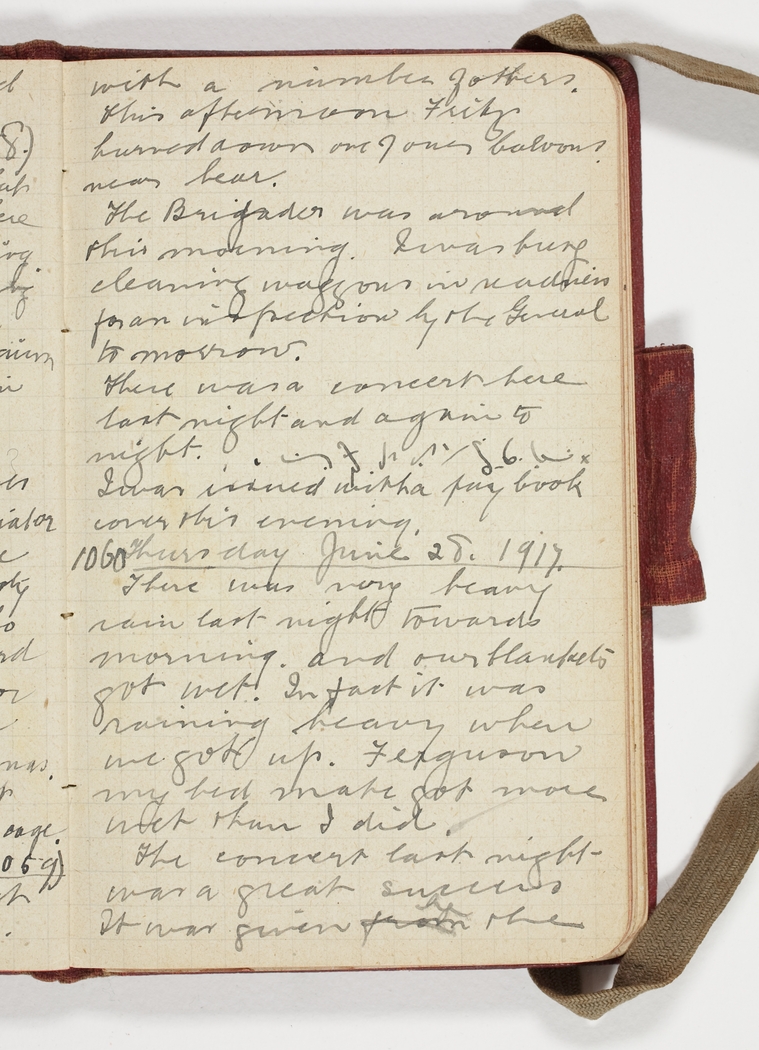 with a number of others.
This afternoon Fritz
burned down one of our baloons
near hear.
The Brigader was around
this morning. I was busy
cleaning waggons in readiness
for an inspection by the General
to morrow.
There was a concert here
last night and again to
night.
I was issued with a pay book
cover this evening.
1060 Thursday June 28. 1917.
There was very heavy
rain last night towards
morning. and our blankets
got wet. In fact it was
raining heavy when
we got up. Ferguson
my bed mate got more
wet than I did.
The concert last night
was a great success
It was given from by the